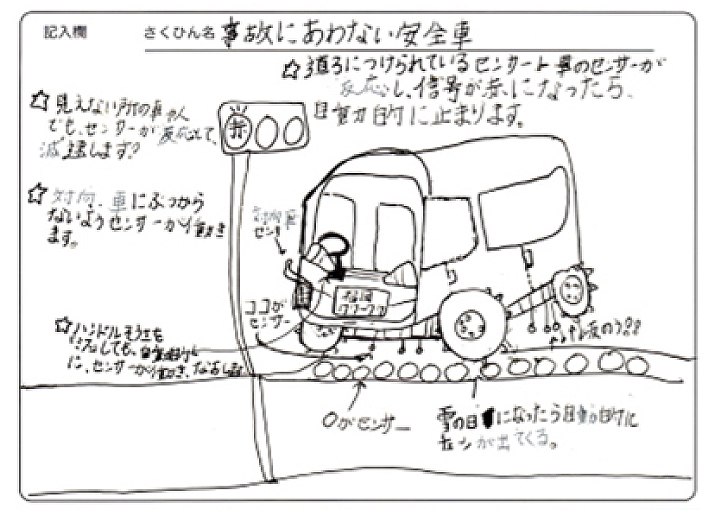 記入欄
さくひん名 事故にあわない安全車
☆道ろにつけられているセンサーと車のセンサーが
反応し、信号が赤になったら、
自動的に止まります。
☆見えない所の車や人
でも、センサーが反応して、
減速します?
赤
☆対向車にぶつから
ないようセンサーが働き
ます。
対向車
センサー
ココが
センサー
☆ハンドルそうさを
しても、自動的
に、センサーが働き、なおします
○がセンサー
雪の日になったら自動的に
が出てくる。